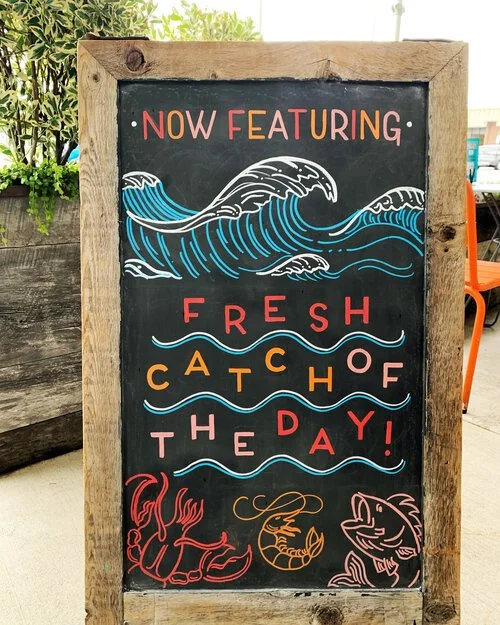 • NOW FEATURING •
FRESH
CATCH OF
THE DAY!